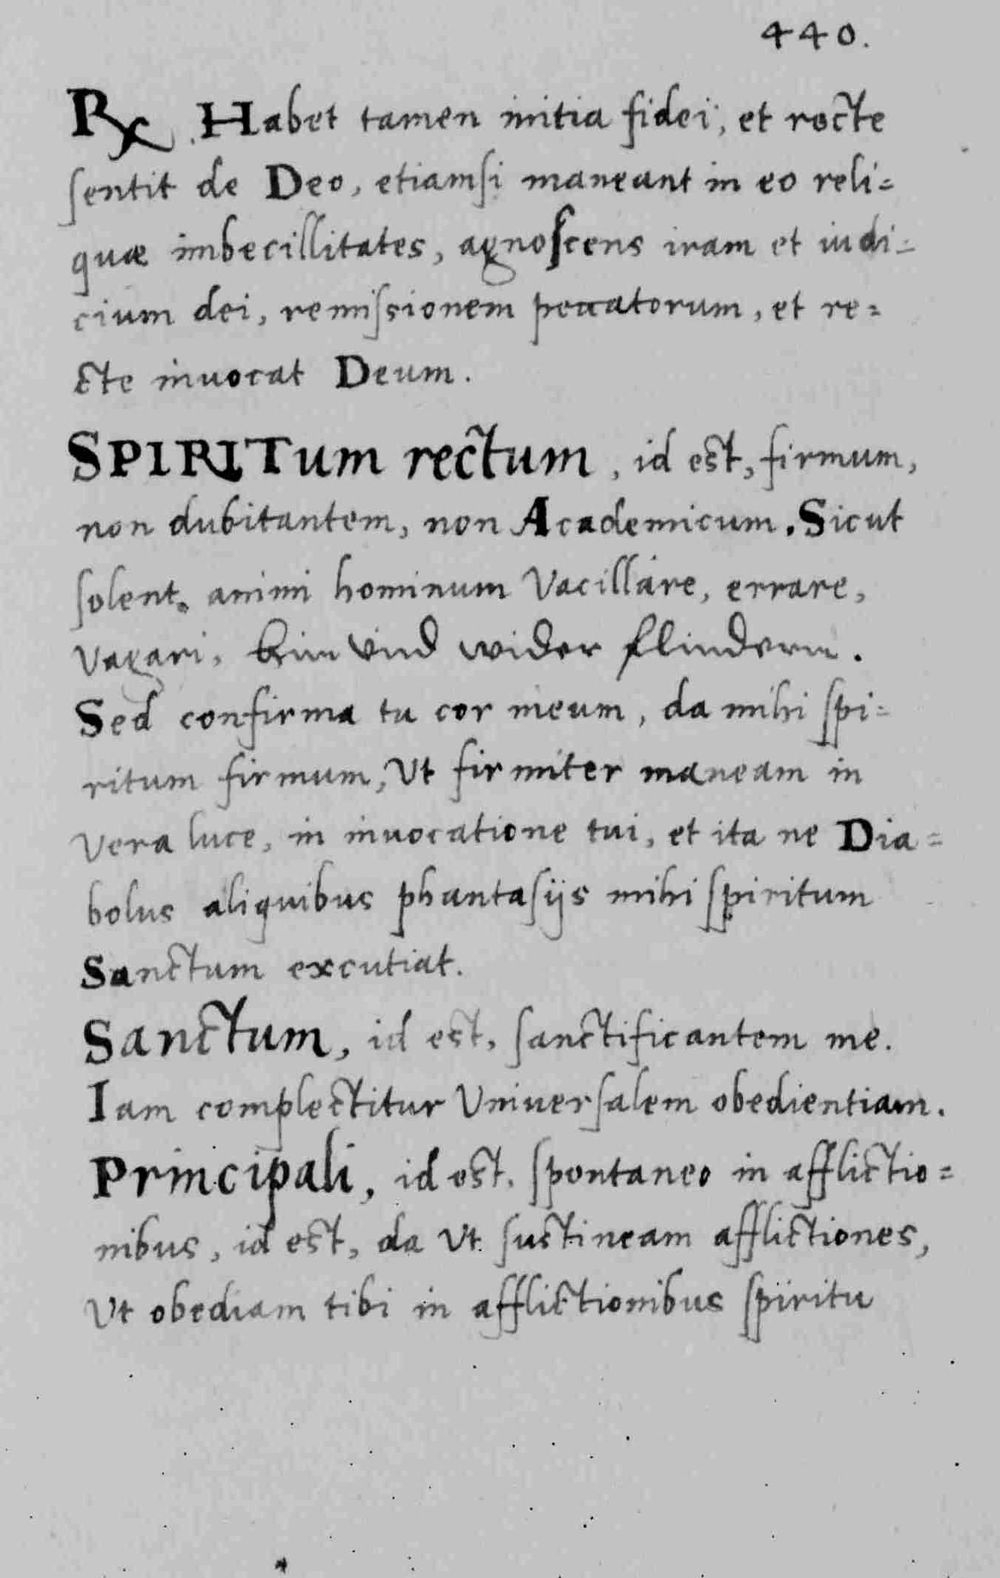 440.
R℞. Habet tamen initia fidei, et recte
sentit de Deo, etiamsi maneant in eo reli=
quæ imbecillitates, agnoscens iram et iudi=
cium dei, remissionem peccatorum, et re=
cte inuocat Deum.
SPIRITum rectum, id est, firmum,
non dubitantem, non Academicum. Sicut
solent animi hominum Vacillare, errare,
Vagari, hin Vnd wider flindern.
Sed confirma tu cor meum, da mihi spi=
ritum firmum, Vt firmiter maneam in
Vera luce, in inuocatione tui, et ita ne Dia=
bolus aliquibus phantasijs mihi spiritum
Sanctum excutiat.
Sanctum, id est, sanctificantem me.
Iam complectitur Vniuersalem obedientiam.
Principali, id est, spontaneo in afflictio=
nibus, id est, da Vt sustineam afflictiones,
Vt obediam tibi in afflictionibus spiritu